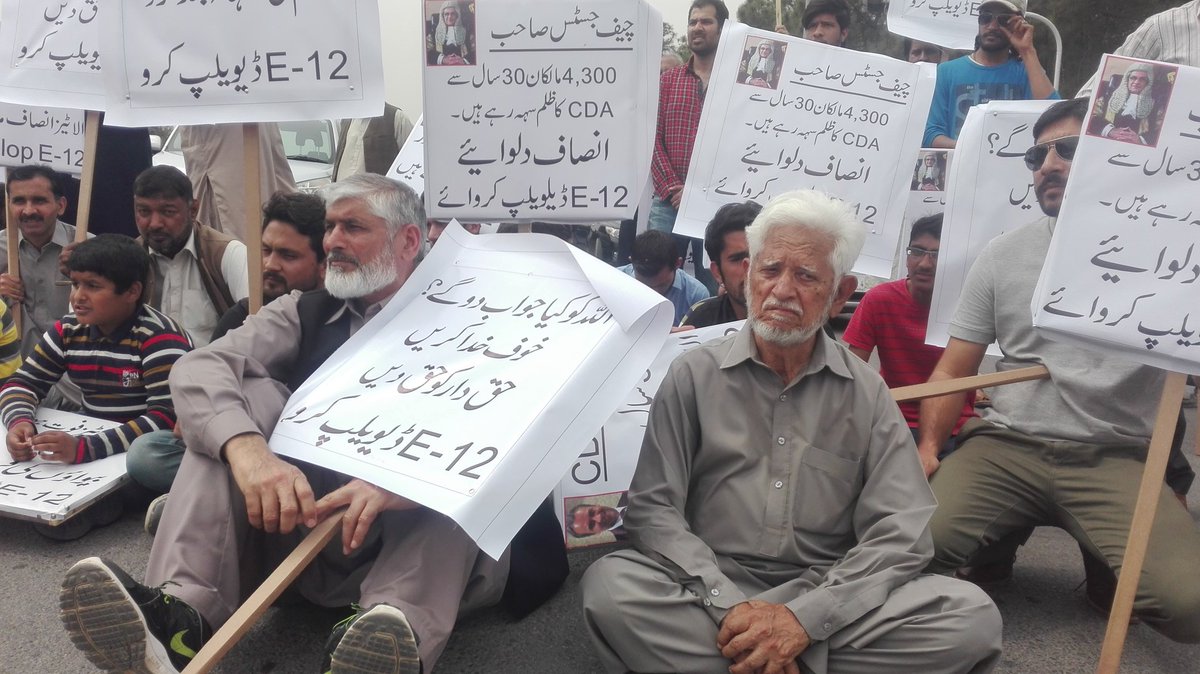 E-12 ڈیویلپ کرو
ڈیویلپ کرو
الاٹیز انصاف
lop E-12
چیف جسٹس صاحب
4,300 مالکان 30 سال سے
CDA کا ظلم سہہ رہے ہیں۔
انصاف دلوائیے
E-12 ڈیلویلپ کروائے
چیف جسٹس صاحب
4,300 مالکان 30 سال سے
CDA کا ظلم سہہ رہے ہیں۔
انصاف دلوائیے
ڈیویلپ کروائے
30 سال سے
رہے ہیں۔
دلوائیے
یلپ کروائے
اللہ کو کیا جواب دو گے؟
خوف خدا کریں
حق دار کو حق دیں
E-12 ڈیویلپ کرو
E-12